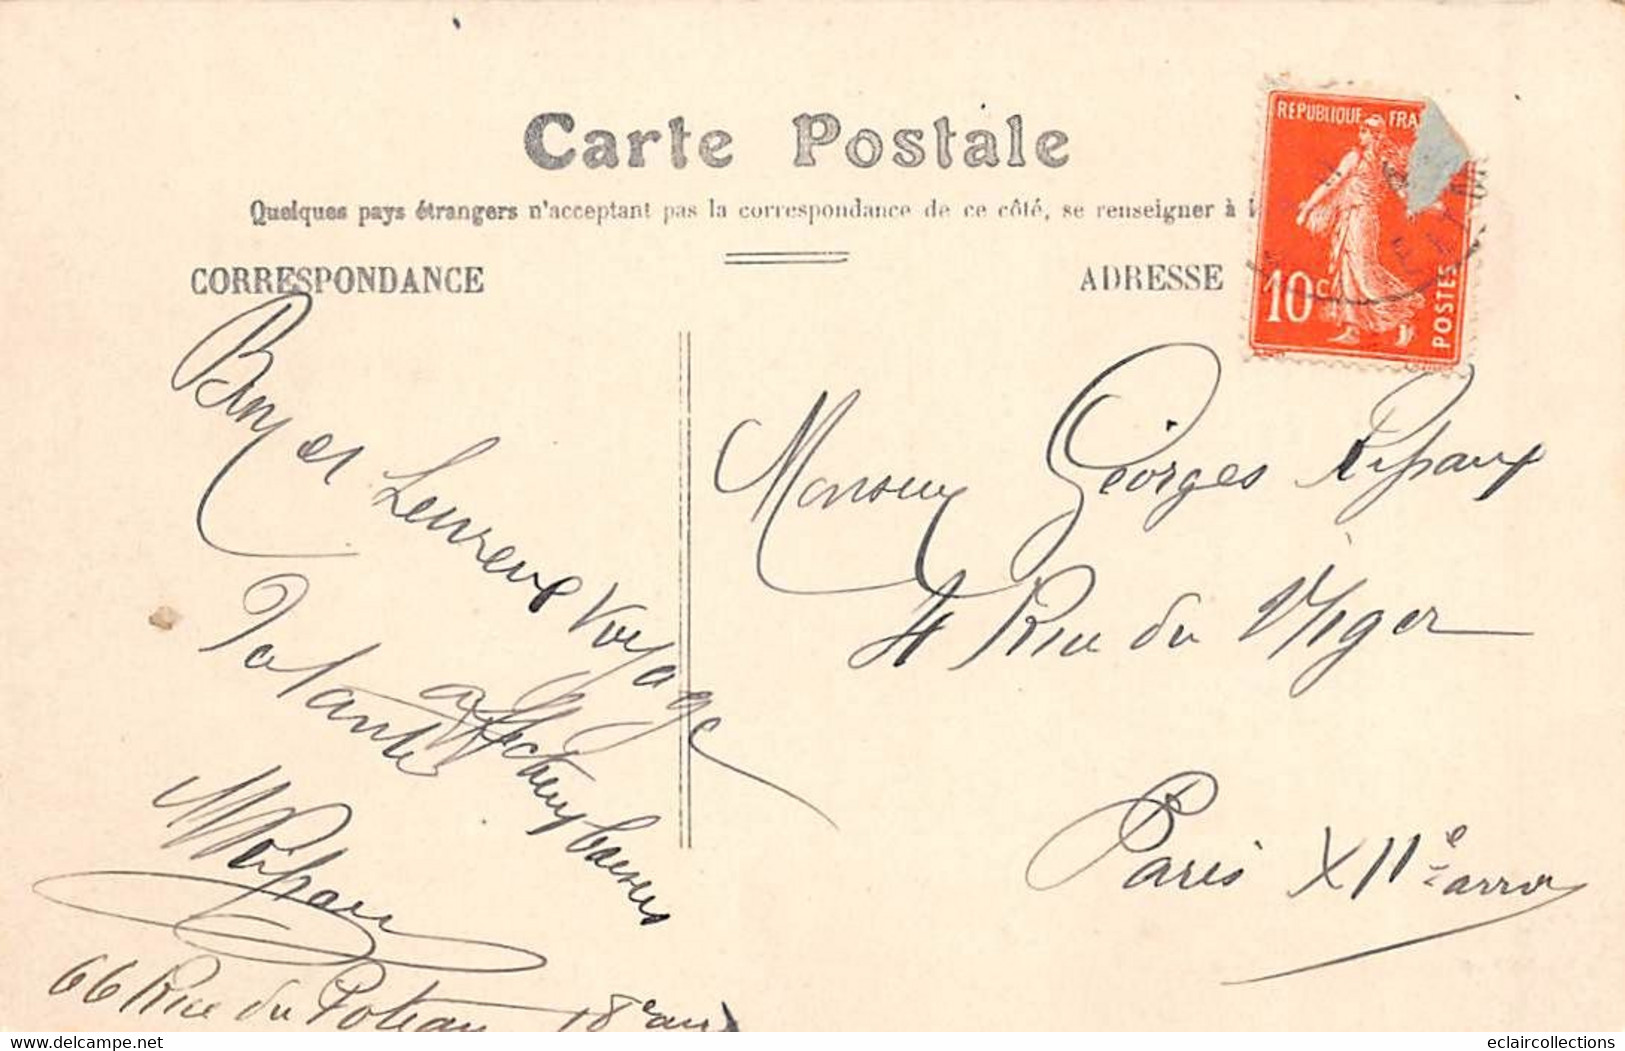 Carte Postale
Quelques pays étrangers n'acceptant pas la correspondance de ce côté, se renseigner à l
CORRESPONDANCE
ADRESSE
REPUBLIQUE FRA
10c
POSTES
Bon et heureux Voyage
Ta tante
affectueux baisers
66 Rue du Poteau 18e arr
Monsieur Georges
4 Rue du Niger
Paris XIIe arron
eclaircollections